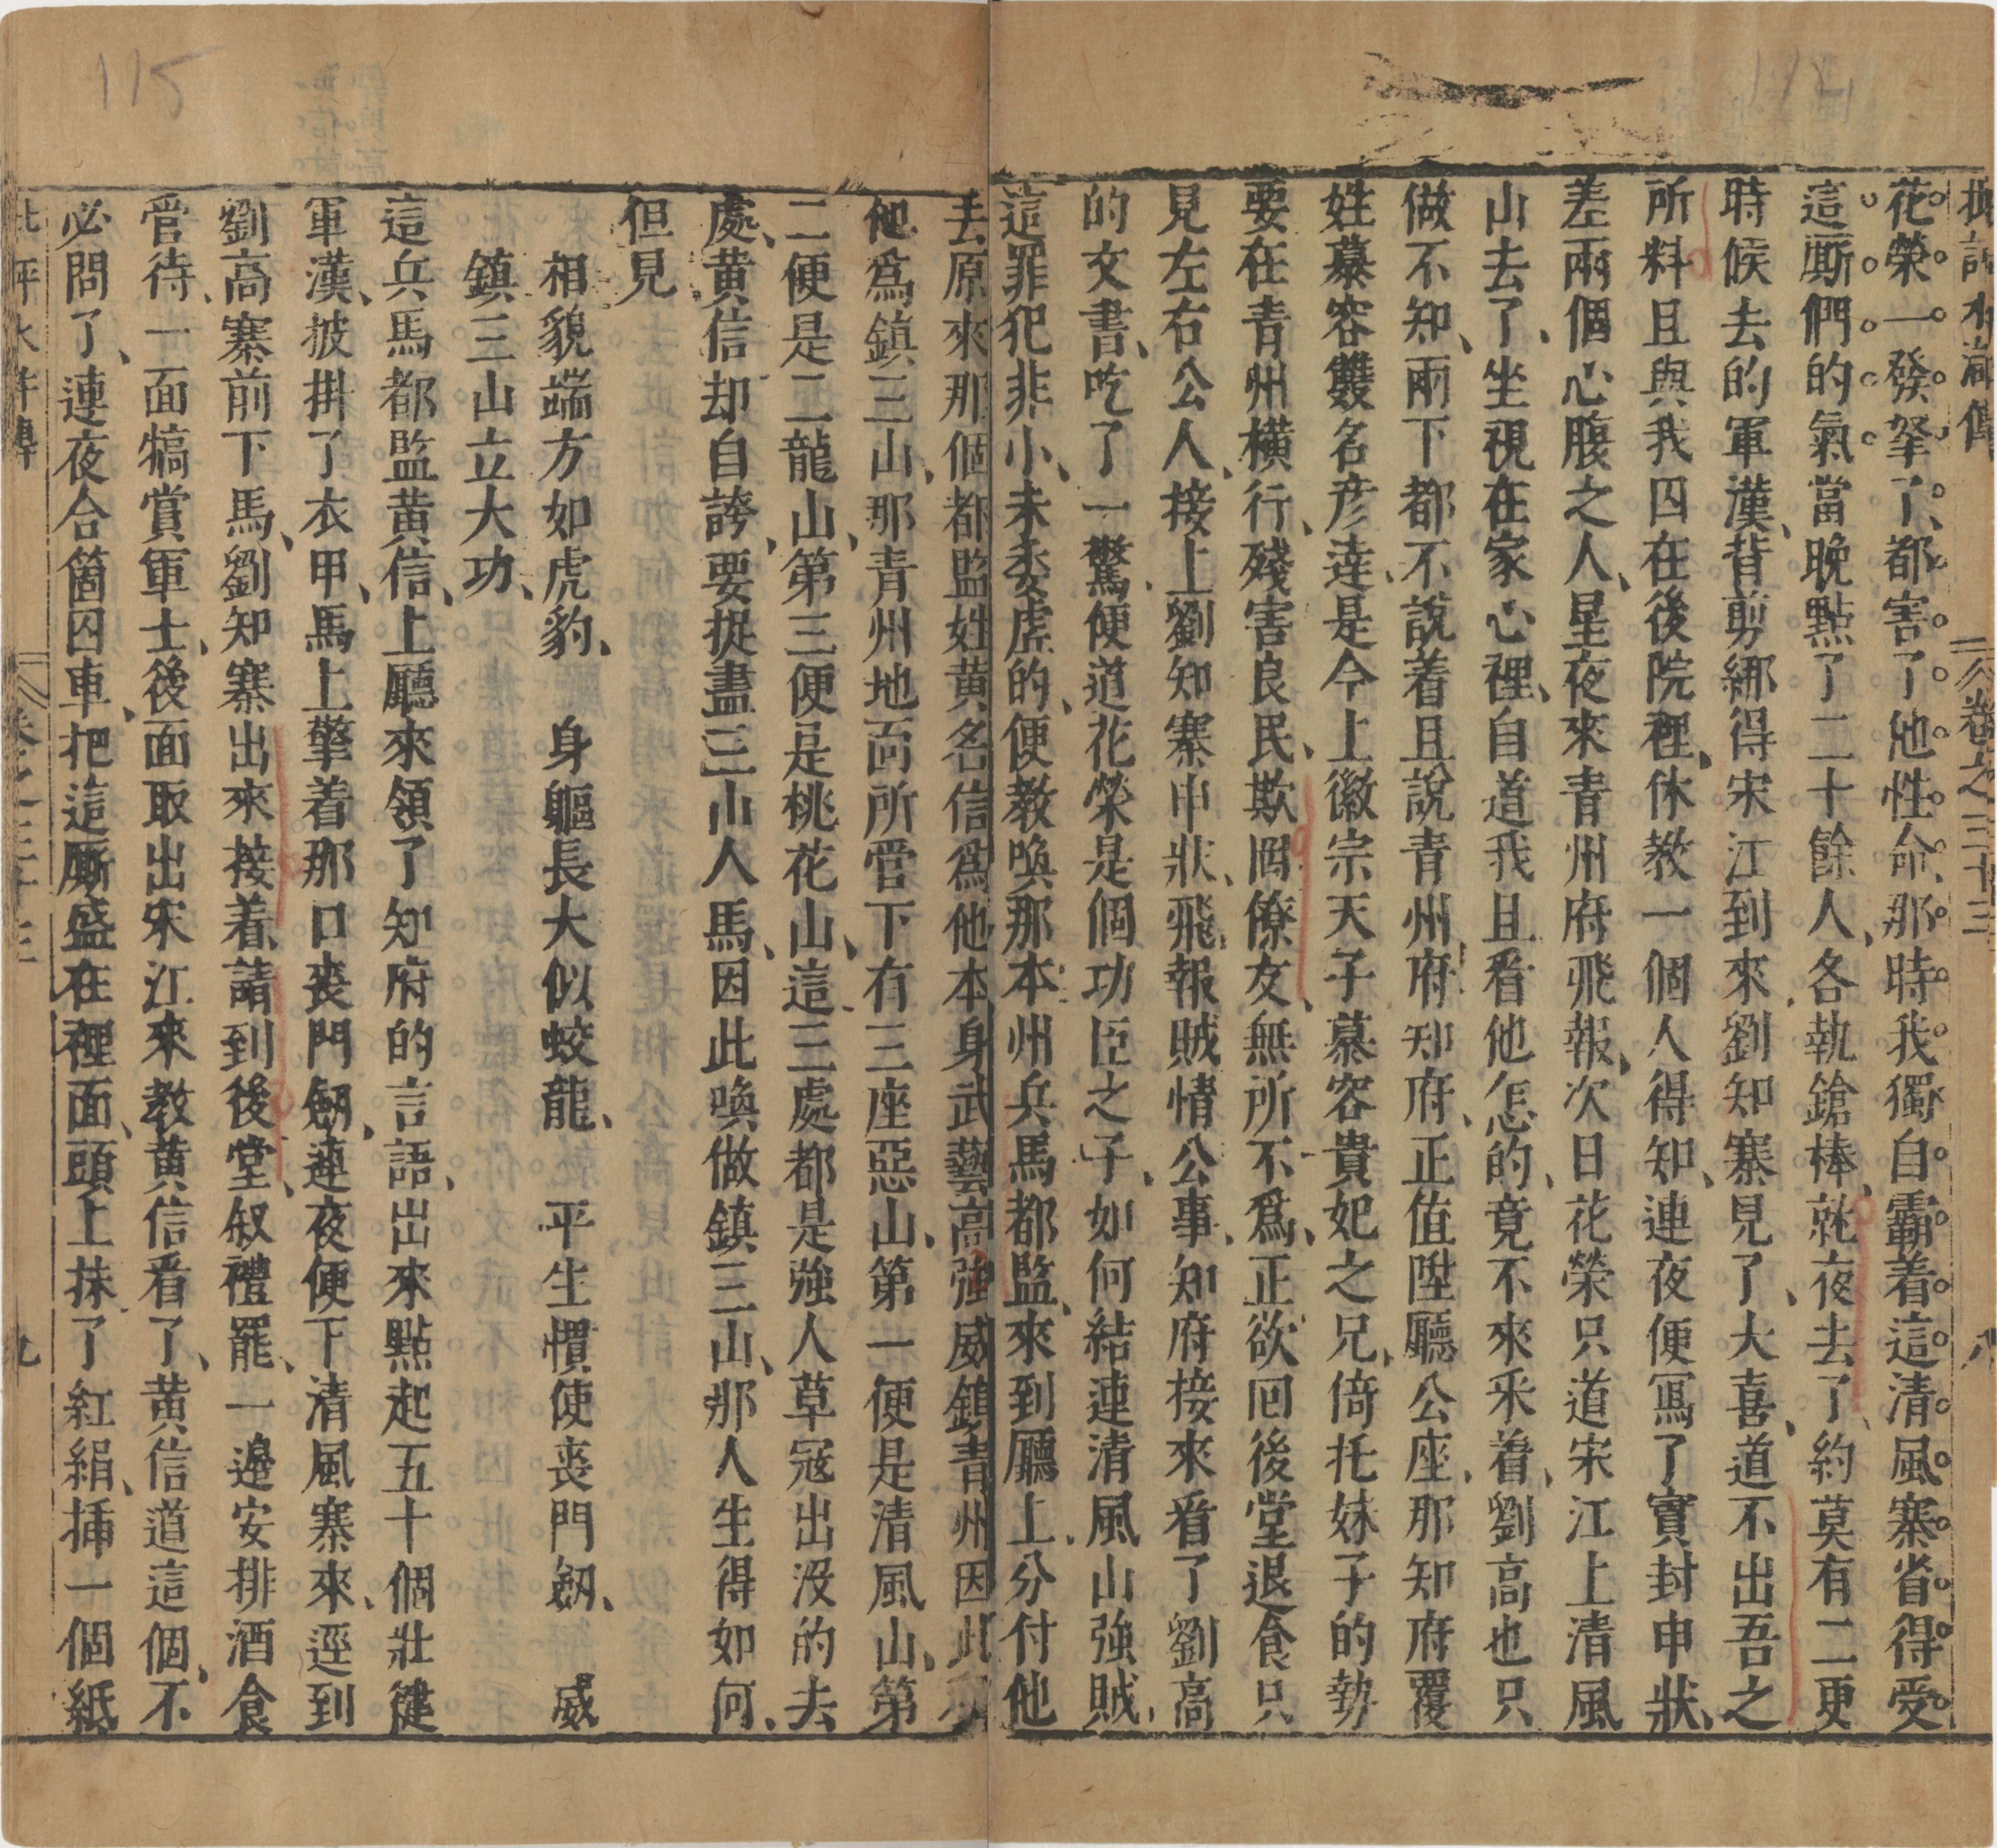 卷之三十三
花榮一發拏了都害了他性命那時我獨自霸着這清風寨省得受
這厮們的氣當晚點了二十餘人各執鎗棒就夜去了約莫有二更
時候去的軍漢背剪綁得宋江到來劉知寨見了大喜道不出吾之
所料且與我囚在後院裡休教一個人得知連夜便寫了實封申狀
差兩個心腹之人星夜來青州府飛報次日花榮只道宋江上清風
山去了坐視在家心裡自道我且看他怎的竟不來采着劉高也只
做不知兩下都不說着且說青州府知府正值陞廳公座那知府覆
姓慕容雙名彦逹是今上徽宗天子慕容貴妃之兄倚托妹子的勢
要在青州橫行殘害良民欺罔僚友無所不爲正欲回後堂退食只
見左右公人接上劉知寨申狀飛報賊情公事知府接來看了劉高
的文書吃了一驚便道花榮是個功臣之子如何結連清風山強賊
這罪犯非小未委虛的便教喚那本州兵馬都監來到廳上分付他
去原來那個都監姓黄名信爲他本身武藝高強威鎮青州因此
他爲鎮三山那青州地面所管下有三座惡山第一便是清風山第
二便是二龍山第三便是桃花山這三處都是強人草寇出没的去
處黄信却自誇要捉盡三山人馬因此喚做鎮三山那人生得如何
但見
相貌端方如虎豹 身軀長大似蛟龍 平生慣使喪門劔 威
鎮三山立大功
這兵馬都監黄信上廳來領了知府的言語出來點起五十個壯健
軍漢披掛了衣甲馬上擎着那口喪門劔連夜便下清風寨來逕到
劉高寨前下馬劉知寨出來接着請到後堂叙禮罷一邊安排酒食
管待一面犒賞軍士後面取出宋江來教黄信看了黄信道這個不
必問了連夜合箇囚車把這厮盛在裡面頭上抹了紅絹插一個紙